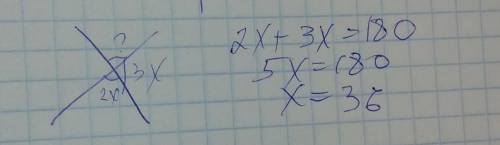 ?
3x
2x
2x + 3x = 180
5x = 180
x = 36